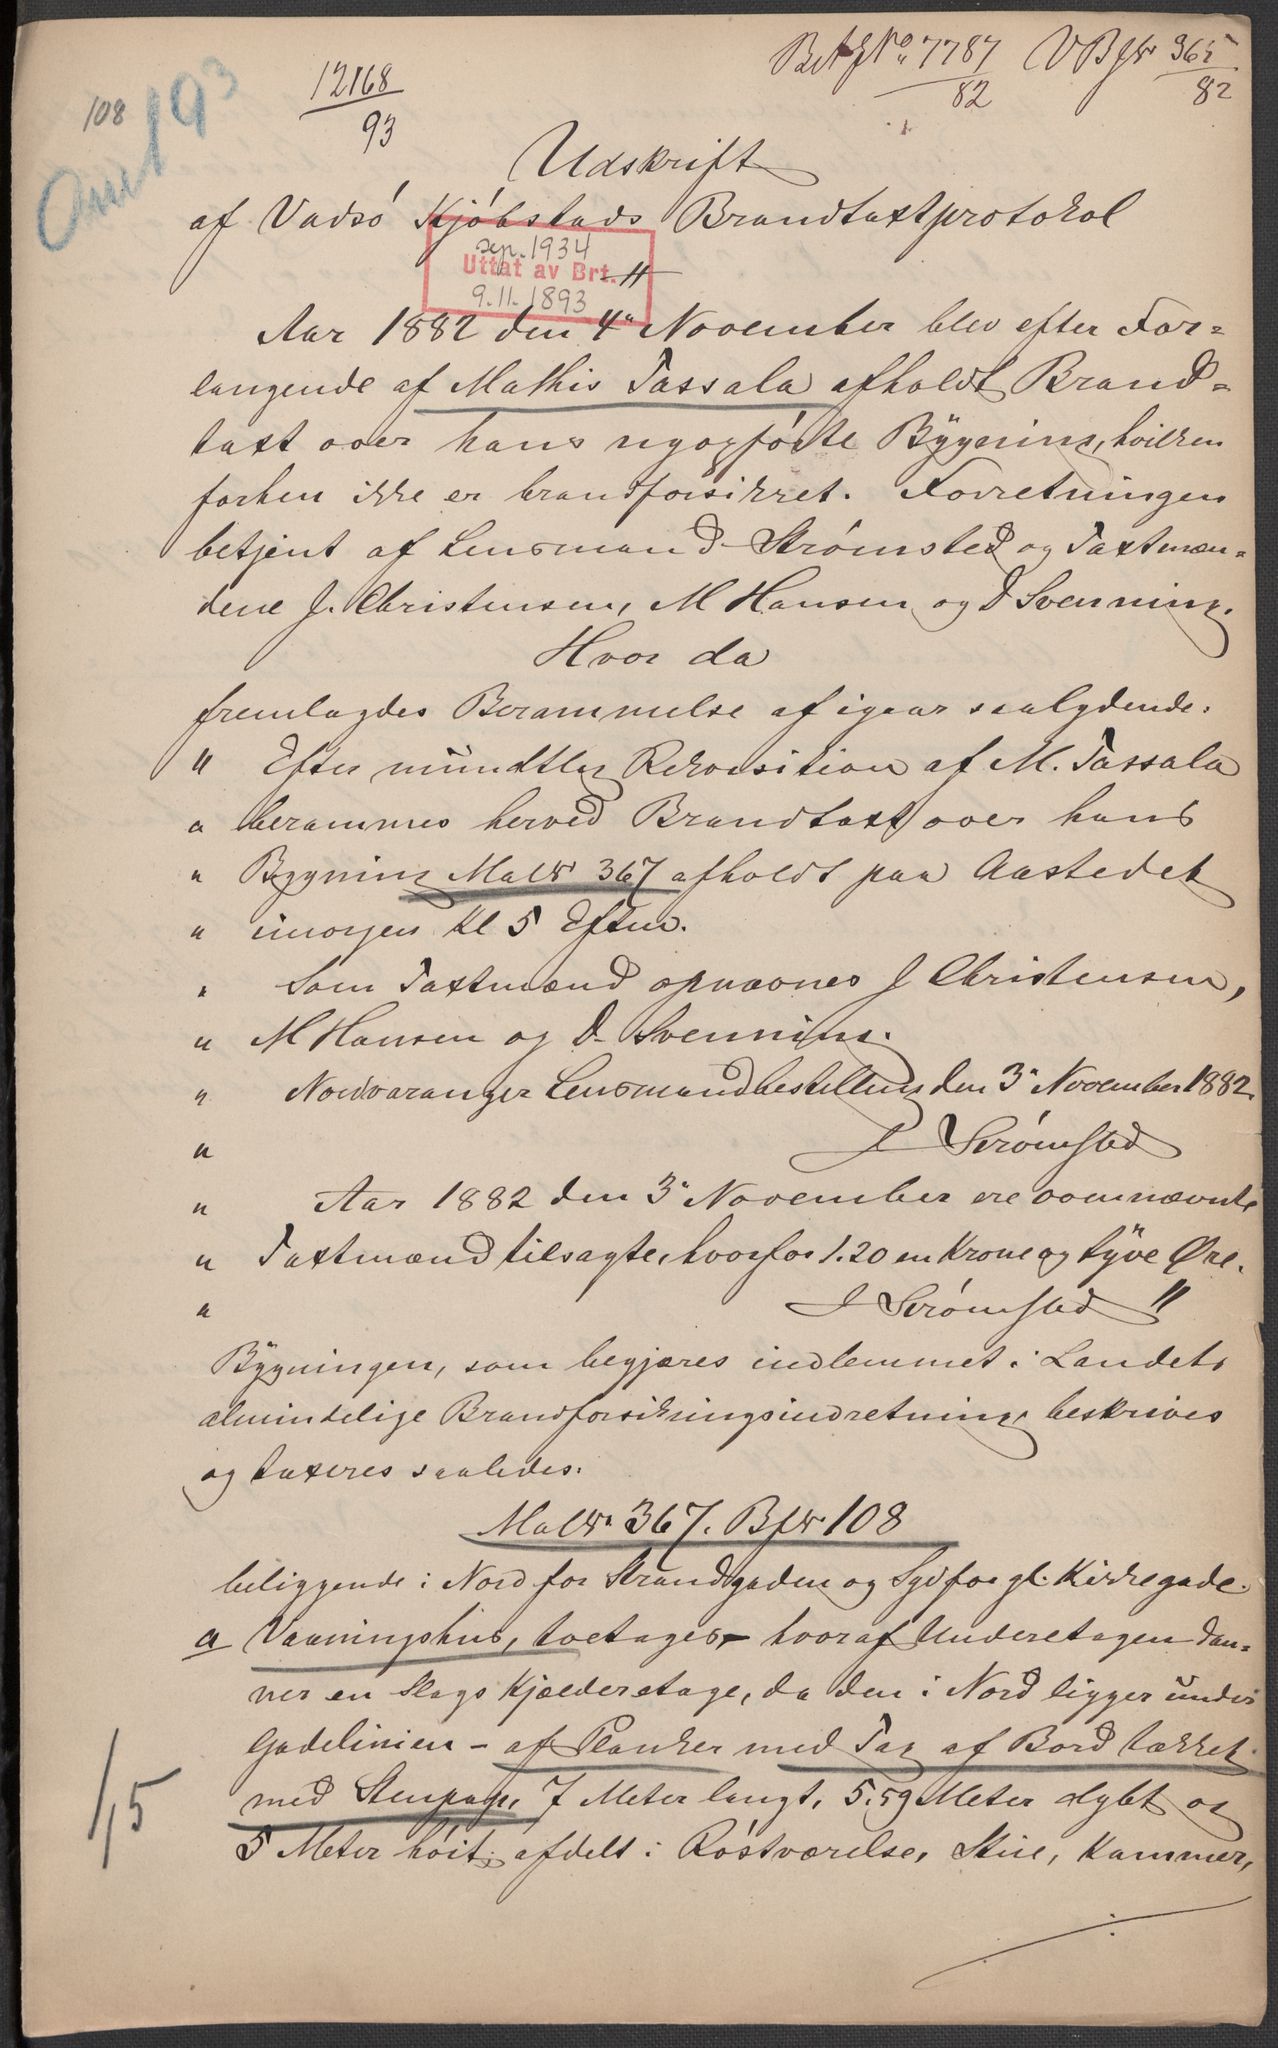 108
Omt 19 3
12168
93
7787
82
365
82
Udskrift
af Vadsø Kjøbstads Brandtaxtprotokol
sep. 1934
Uttatt av Brt.
9.11.1893
Aar 1882 den 4" November blev efter For=
langende af Mathis Tassala afholdt Brand=
taxt over hans nyopførte Bygning, hvilken
forhen ikke er brandforsikret. Forretningen
betjent af Lensmand Strømsted og Taxtmæn=
dene J. Christensen, M Hansen og D Svenning.
Hvor da
fremlagdes Berammelse af igaar saalydende:
" Efter mundtlig Rekvisition af M. Tassala
" berammes herved Brandtaxt over hans
" Bygning MaNr 367 afholdt paa Aastedet
" imorgen Kl 5 Eftm.
" Som Taxtmænd opnævnes J Christensen,
" M Hansen og D. Svenning.
" Nordvaranger Lensmandbestilling den 3" November 1882.
" J Strømsted
" Aar 1882 den 3" November ere ovennævnte
" Taxtmænd tilsagte, hvorfor 1.20 en Krone og tyve Øre.
" J Strømsted "
Bygningen, som begjæres indlemmet i Landets
almindelige Brandforsikringsindretning beskrives
og taxeres saaledes:
MaNr. 367. BfNr. 108
beliggende i Nord for Strandgaden og Syd for gl. Kirkegade.
a Vaaningshus, toetages - hvoraf Underetagen dan=
ner en Slags Kjælderetage, da den i Nord ligger under
Gadelinien - af Planker med Tag af Bord tækket
med Stenpap, 7 Meter langt, 5.59 Meter dybt og
1/15
5 Meter høit; afdelt i Røstværelse, Stue, Kammer,